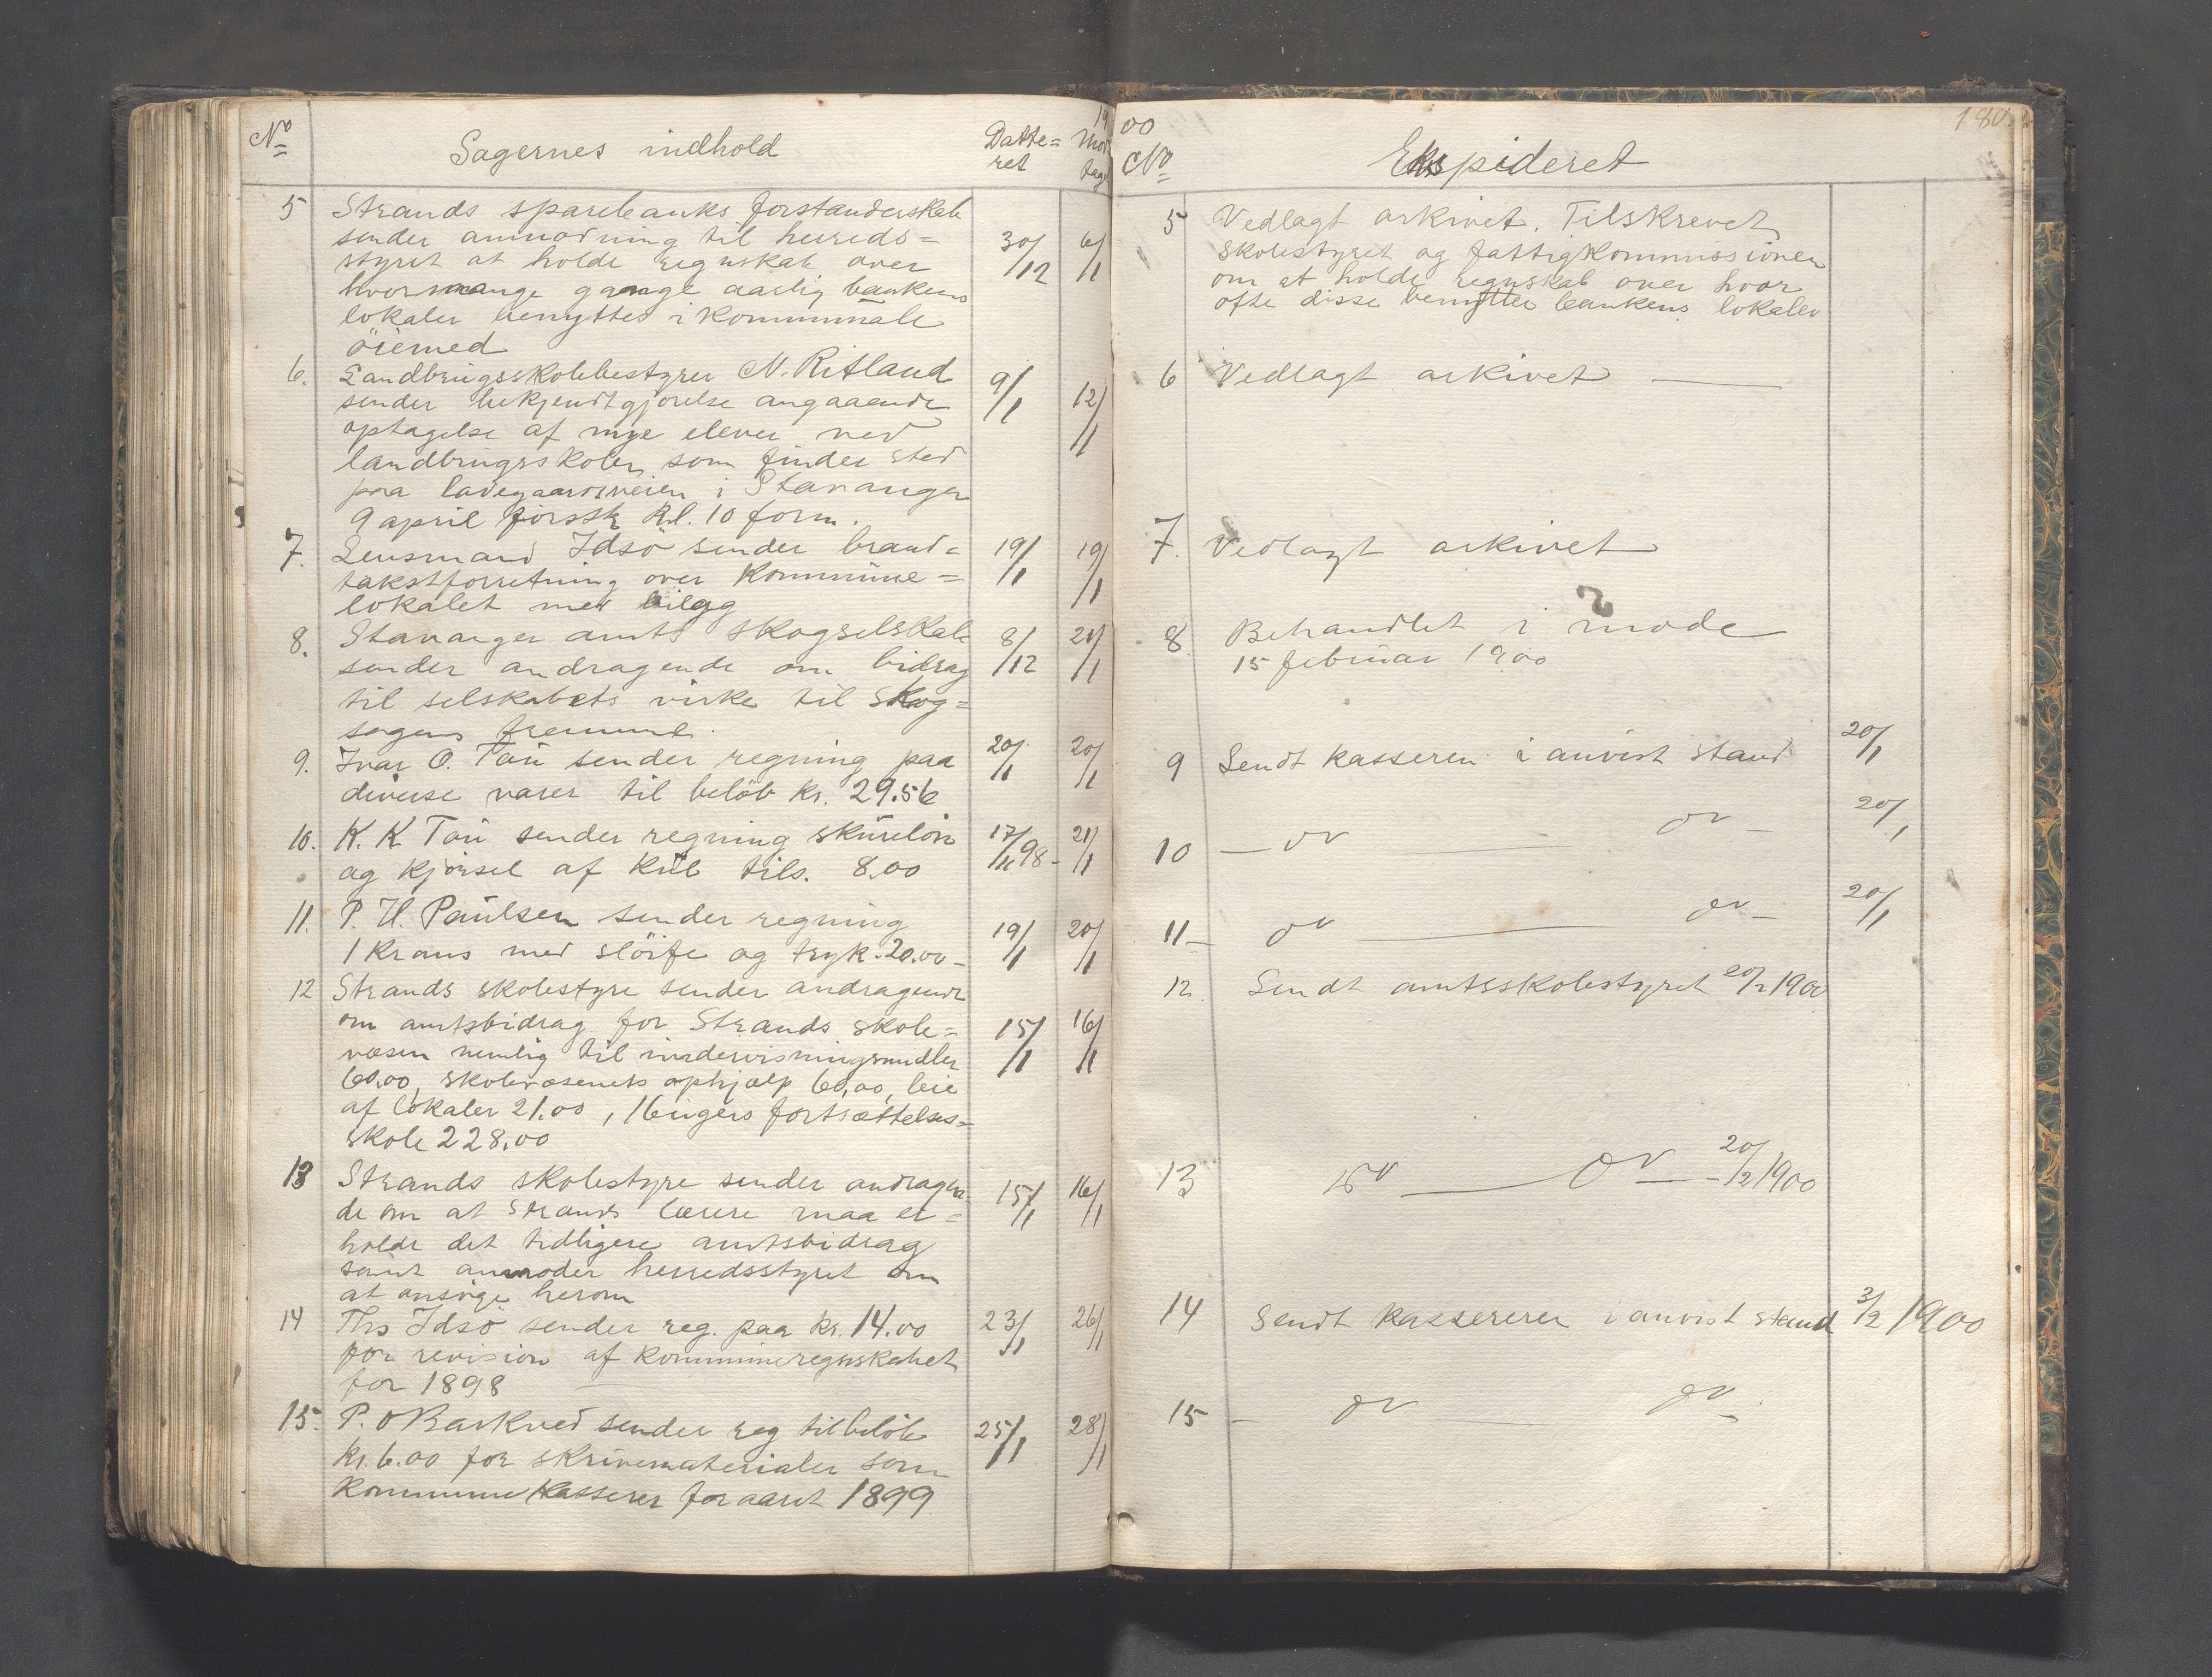 19
No Sagernes indhold Datte= Mod
ret tag
5 Strands sparebanks forstanderskab
sender anmodning til herreds= 30/12 6/1
styret at holde regnskab over
hvormange gange aarlig bankens
lokaler benyttes i kommunale
öiemed
6. Landbrugsskolebestyrer N. Ritland 9/1 12/1
sender bekjendtgjörelse angaaende
optagelse af nye elever ved
landbrugsskolen som finder sted
paa ladegaardsveien i Stavanger
9 april förstk kl. 10 form.
7. Lensmand Idsö sender brand= 19/1 19/1
takstforretning over kommune=
lokalet med bilag
8. Stavanger amts skogselskab 8/12 21/1
sender andragende om bidrag
til selskabets virke til skog=
sagens fremme.
9. Ivar O. Tau sender regning paa 20/1 20/1
diverse varer til belöb kr. 29.56
10. K. K Tau sender regning skurelön 17/11 98- 21/1
og kjörsel af kul tils. 8.00
11. P. H. Paulsen sender regning
1 krans med slöife og tryk. 20.00- 19/1 20/1
12 Strands skolestyre sender andragende
om amtsbidrag for Strands skole= 15/1 16/1
væsen nemlig til undervisningsmidler
60.00, skolevæsenets ophjælp 60,00, leie
af lokaler 21.00, 16 ugers fortsættelses=
skole 228.00
13 Strands skolestyre sender andragen- 15/1 16/1
de om at Strands lærere maa er=
holde det tidligere amtsbidrag
samt anmoder herredsstyret om
at ansöge herom
14 Ths Idsö sender reg. paa kr. 14.00 23/1 26/1
for revision af kommuneregnskabet
for 1898
15. P. O Barkved sender reg til belöb 25/1 28/1
kr. 6.00 for skrivematerialer som
kommune kasserer for aaret 1899
00 180.
No Ekspideret
5 Vedlagt arkivet. Tilskrevet
skolestyret og fattigkommissionen
om at holde regnskab over hvor
ofte disse benytter bankens lokaler
6 Vedlagt arkivet
7. Vedlagt arkivet
8 Behandlet i möde
15 februar 1900
9 Sendt kasseren i anvist stand 20/1
10 - do - do - 20/1
11 - do - do - 20/1
12. Sendt amtsskolestyret 20/2 1900
13 do - do - 20/2 1900
14 Sendt kassereren i anvist stand 3/2 1900
15 - do - do